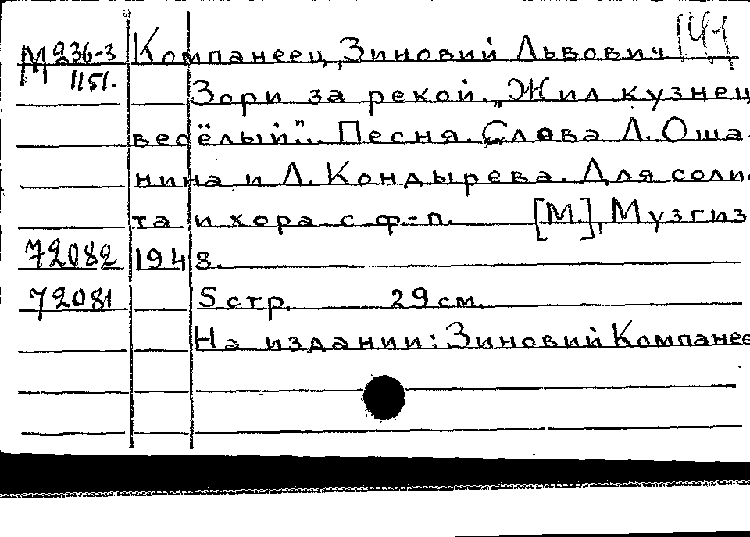 М 236-3 Компанеец, Зиновий Львович
1151. Зори за рекой. „Жил кузнец
весёлый". Песня. Слова Л. Оша-
нина и Л. Кондырева. Для соли-
та и хора с ф.-п. [М.], Музгиз
72082 1948.
72081 5 стр. 29 см.
На издании: Зиновий Компанее